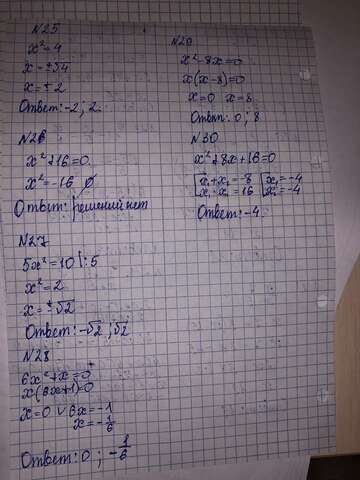 №25
x² = 4
x = ±√4
x = ±2
Ответ: -2; 2.
№26
x² + 16 = 0
x² = -16 ∅
Ответ: решений нет
№27
5x² = 10 |:5
x² = 2
x = ±√2
Ответ: -√2; √2
№28
6x² + x = 0
x(6x+1) = 0
x = 0 ∨ 6x = -1
x = -1/6
Ответ: 0; -1/6
№29
x² - 8x = 0
x(x-8) = 0
x = 0 x = 8
Ответ: 0; 8
№30
x² + 8x + 16 = 0
[x₁ + x₂ = -8 [x₁ = -4
[x₁ · x₂ = 16 [x₂ = -4
Ответ: -4